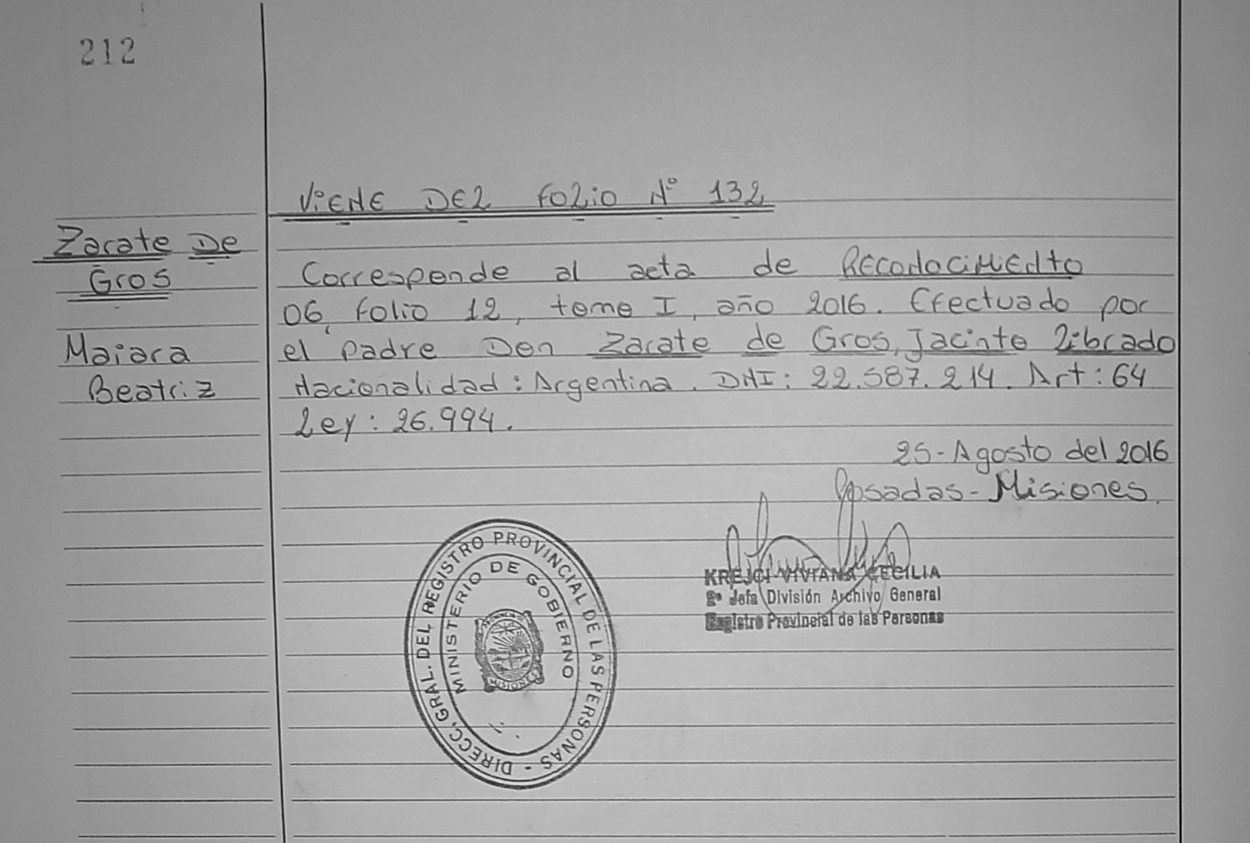 212
Viene del Folio N° 132
Zarate De
Gros
Maiara
Beatriz
Corresponde al acta de Reconocimiento
06, Folio 12, tomo I, año 2016. Efectuado por
el padre Don Zarate de Gros, Jacinto Librado
Nacionalidad: Argentina. DNI: 22.587.214. Art: 64
Ley: 26.994.
25-Agosto del 2016
Posadas-Misiones.
KREJCI VIVIANA CECILIA
2° Jefa División Archivo General
Registro Provincial de las Personas
DIRECC. GRAL. DEL REGISTRO PROVINCIAL DE LAS PERSONAS -
MINISTERIO DE GOBIERNO
MISIONES